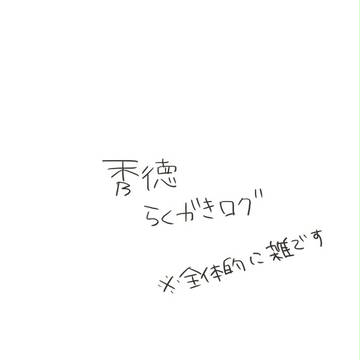 秀徳
らくがきログ
※全体的に雑です